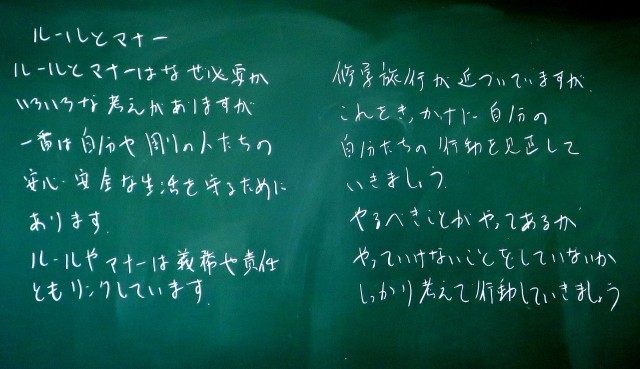 ルールとマナー
ルールとマナーはなぜ必要か
いろいろな考えがありますが
一番は自分や周りの人たちの
安心・安全な生活を守るために
あります.
ルールやマナーは義務や責任
ともリンクしています.
修学旅行が近づいていますが.
これをきっかけに自分の
自分たちの行動を見直して
いきましょう.
やるべきことがやってあるか
やっていけないことをしていないか
しっかり考えて行動していきましょう